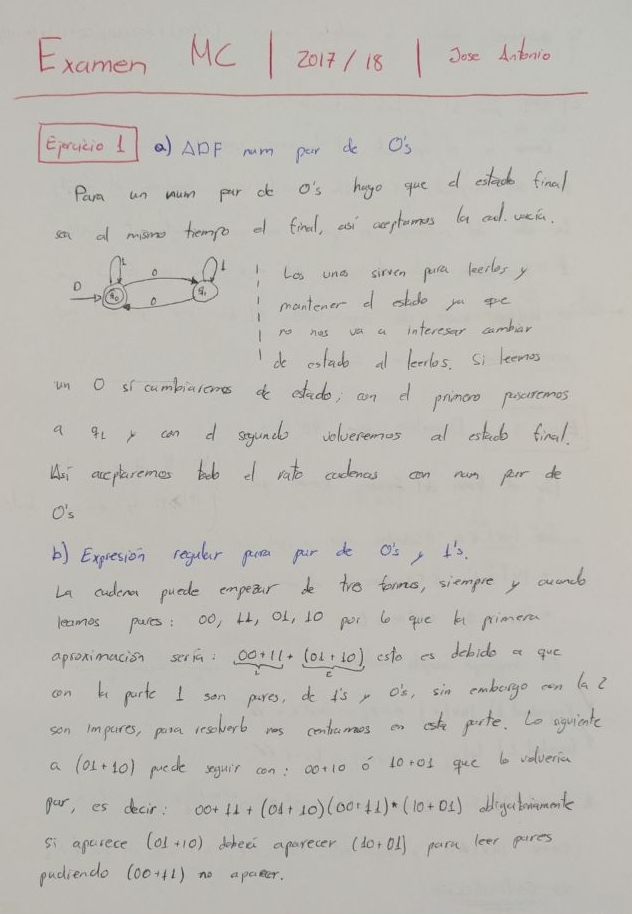 Examen MC | 2017/18 | Jose Antonio
Ejercicio 1 a) ADF num par de 0's
Para un num par de 0's hago que el estado final
sea al mismo tiempo el final, así aceptamos la cad. vacía.
1 0 1
0 q0 0 q1
Los unos sirven para leerlos y
mantener el estado ya que
no nos va a interesar cambiar
de estado al leerlos. Si leemos
un 0 sí cambiaremos de estado; con el primero pasaremos
a q1 y con el segundo volveremos al estado final.
Así aceptaremos todo el rato cadenas con num par de
0's
b) Expresión regular para par de 0's y 1's.
La cadena puede empezar de tres formas, siempre y cuando
leamos pares: 00, 11, 01, 10 por lo que la primera
aproximación sería: 00+11 + (01+10) esto es debido a que
1 2
con la parte 1 son pares, de 1's y 0's, sin embargo con la 2
son impares, para resolverlo nos centramos en esta parte. Lo siguiente
a (01+10) puede seguir con: 00+10 ó 10+01 que lo volvería
par, es decir: 00+11+(01+10)(00+11)*(10+01) obligatoriamente
si aparece (01+10) deberá aparecer (10+01) para leer pares
pudiendo (00+11) no aparecer.